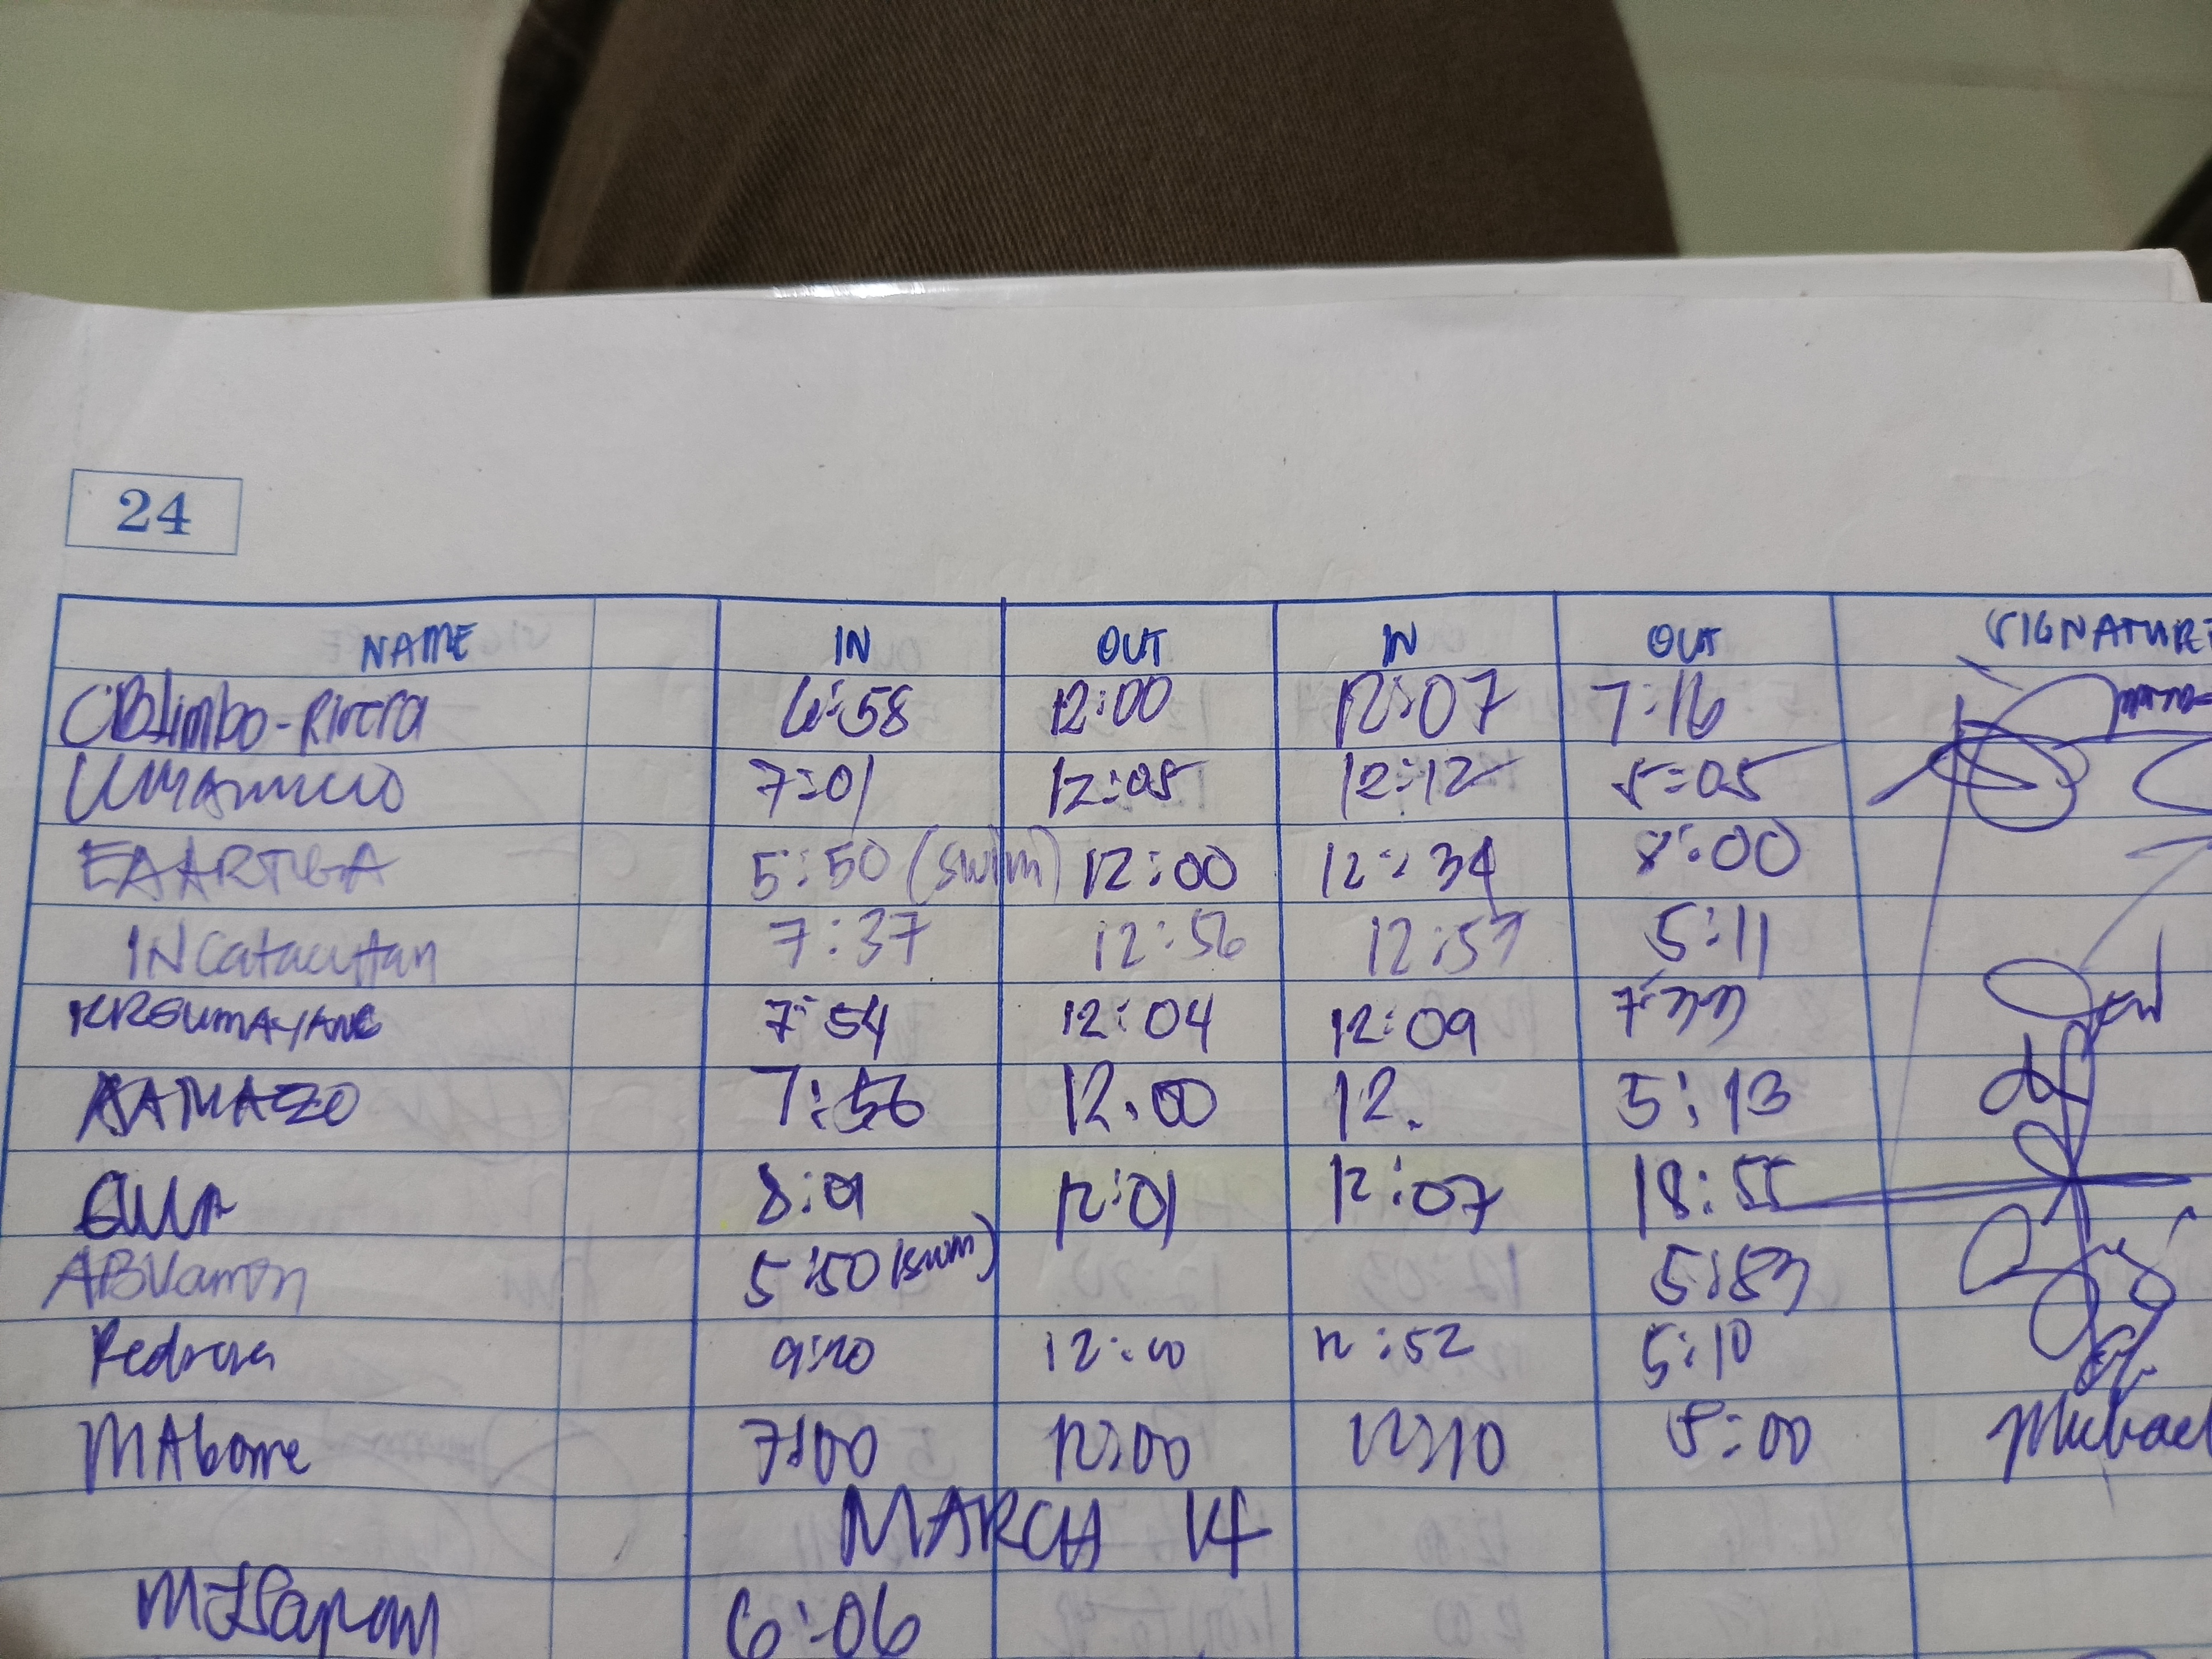 24
NAME IN OUT IN OUT SIGNATURE
CBLimbo-Rivera 6:58 12:00 12:07 7:16
7:01 12:05 12:12 5:05
EAARTIGA 5:50 (swim) 12:00 12:34 8:00
INCatacutan 7:37 12:56 12:57 5:11
KRGUMAYANG 7:54 12:04 12:09 7:33
7:56 12.00 12. 5:13
8:01 12:01 12:07 18:55
5:50 (swim) 5:53
Pedrosa 9:20 12:00 12:52 5:10
MAbonne 7:00 12:00 12:10 8:00 Michael
MARCH 14
6:06